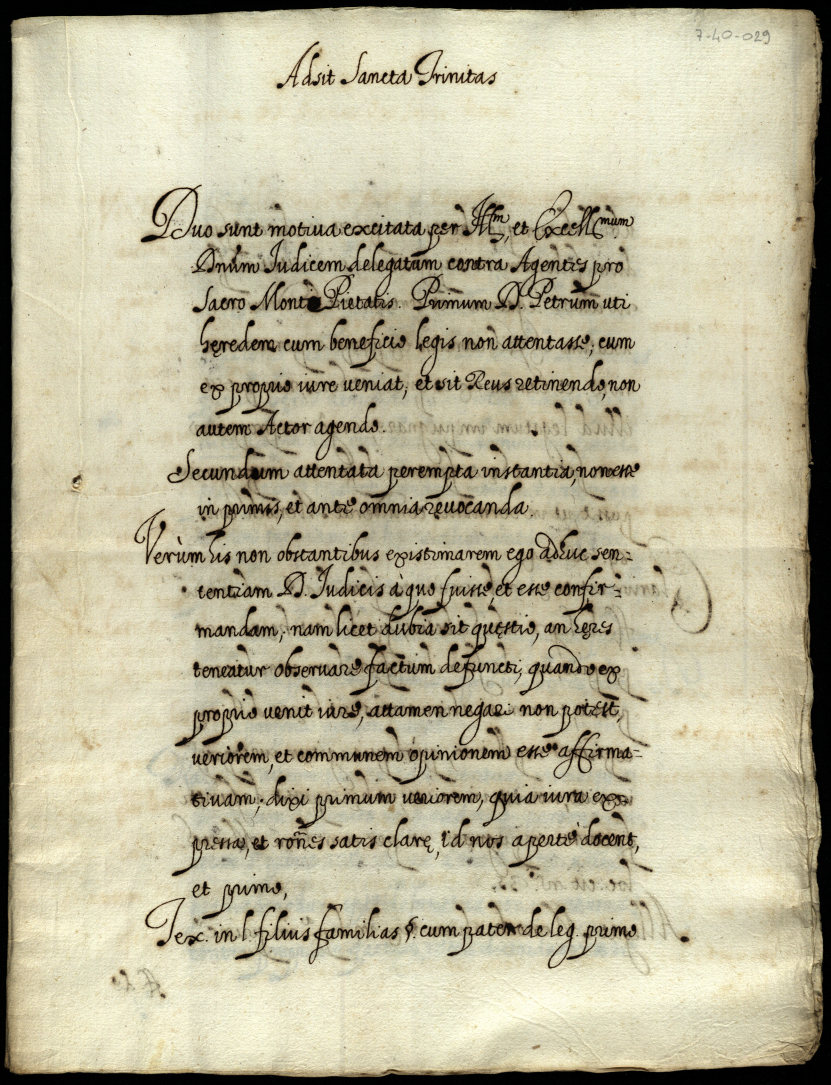 7-40-029
Adsit Sancta Trinitas
Duo sunt motiva excitata per Ill.m, et Excell.mum
Dnum Iudicem delegatum contra Agentes pro
Sacro Monte Pietatis. Primum D. Petrum uti
hęredem cum beneficio legis non attentasse, cum
ex proprio iure veniat, et sit Reus retinendo, non
autem Actor agendo.
Secundum attentata perempta instantia, non esse
in primis, et ante omnia revocanda.
Verùm his non obstantibus existimarem ego adhuc sen=
tentiam D. Iudicis à quo fuisse, et esse confir=
mandam, nam licet dubia sit quęstio, an hęres
teneatur observare factum defuncti, quando ex
proprio venit iure, attamen negari non potest,
veriorem, et communem opinionem esse affirma=
tivam; dixi primum veriorem, quia iura ex=
pressa, et rones satis clarę, id nos apertè docent,
et primo,
Tex. in l. filius familias §. cum pater de leg. primo